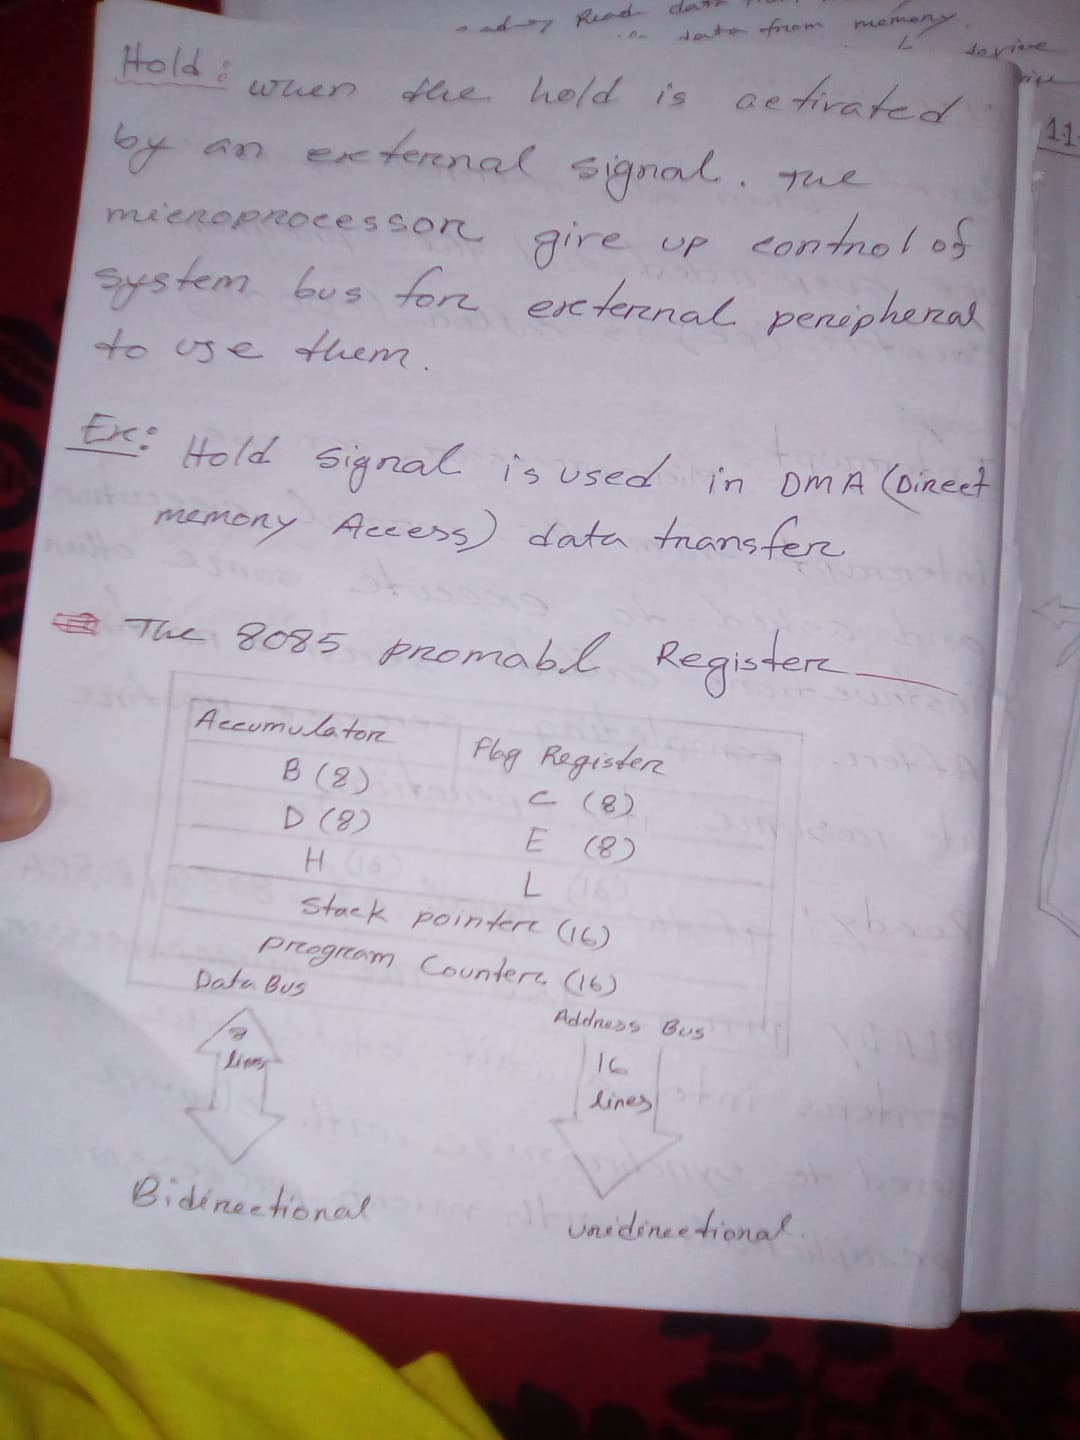 Read data
data from memory
Hold:
when the hold is activated
by an external signal. The
microprocessor give up control of
system bus for external peripheral
to use them.
Ex: Hold signal is used in DMA (Direct
memory Access) data transfer
The 8085 promabl Register
Accumulator Flag Register
B (8) C (8)
D (8) E (8)
H L
Stack pointer (16)
Program Counter (16)
Data Bus Address Bus
8 lines 16 lines
Bidirectional unidirectional
11